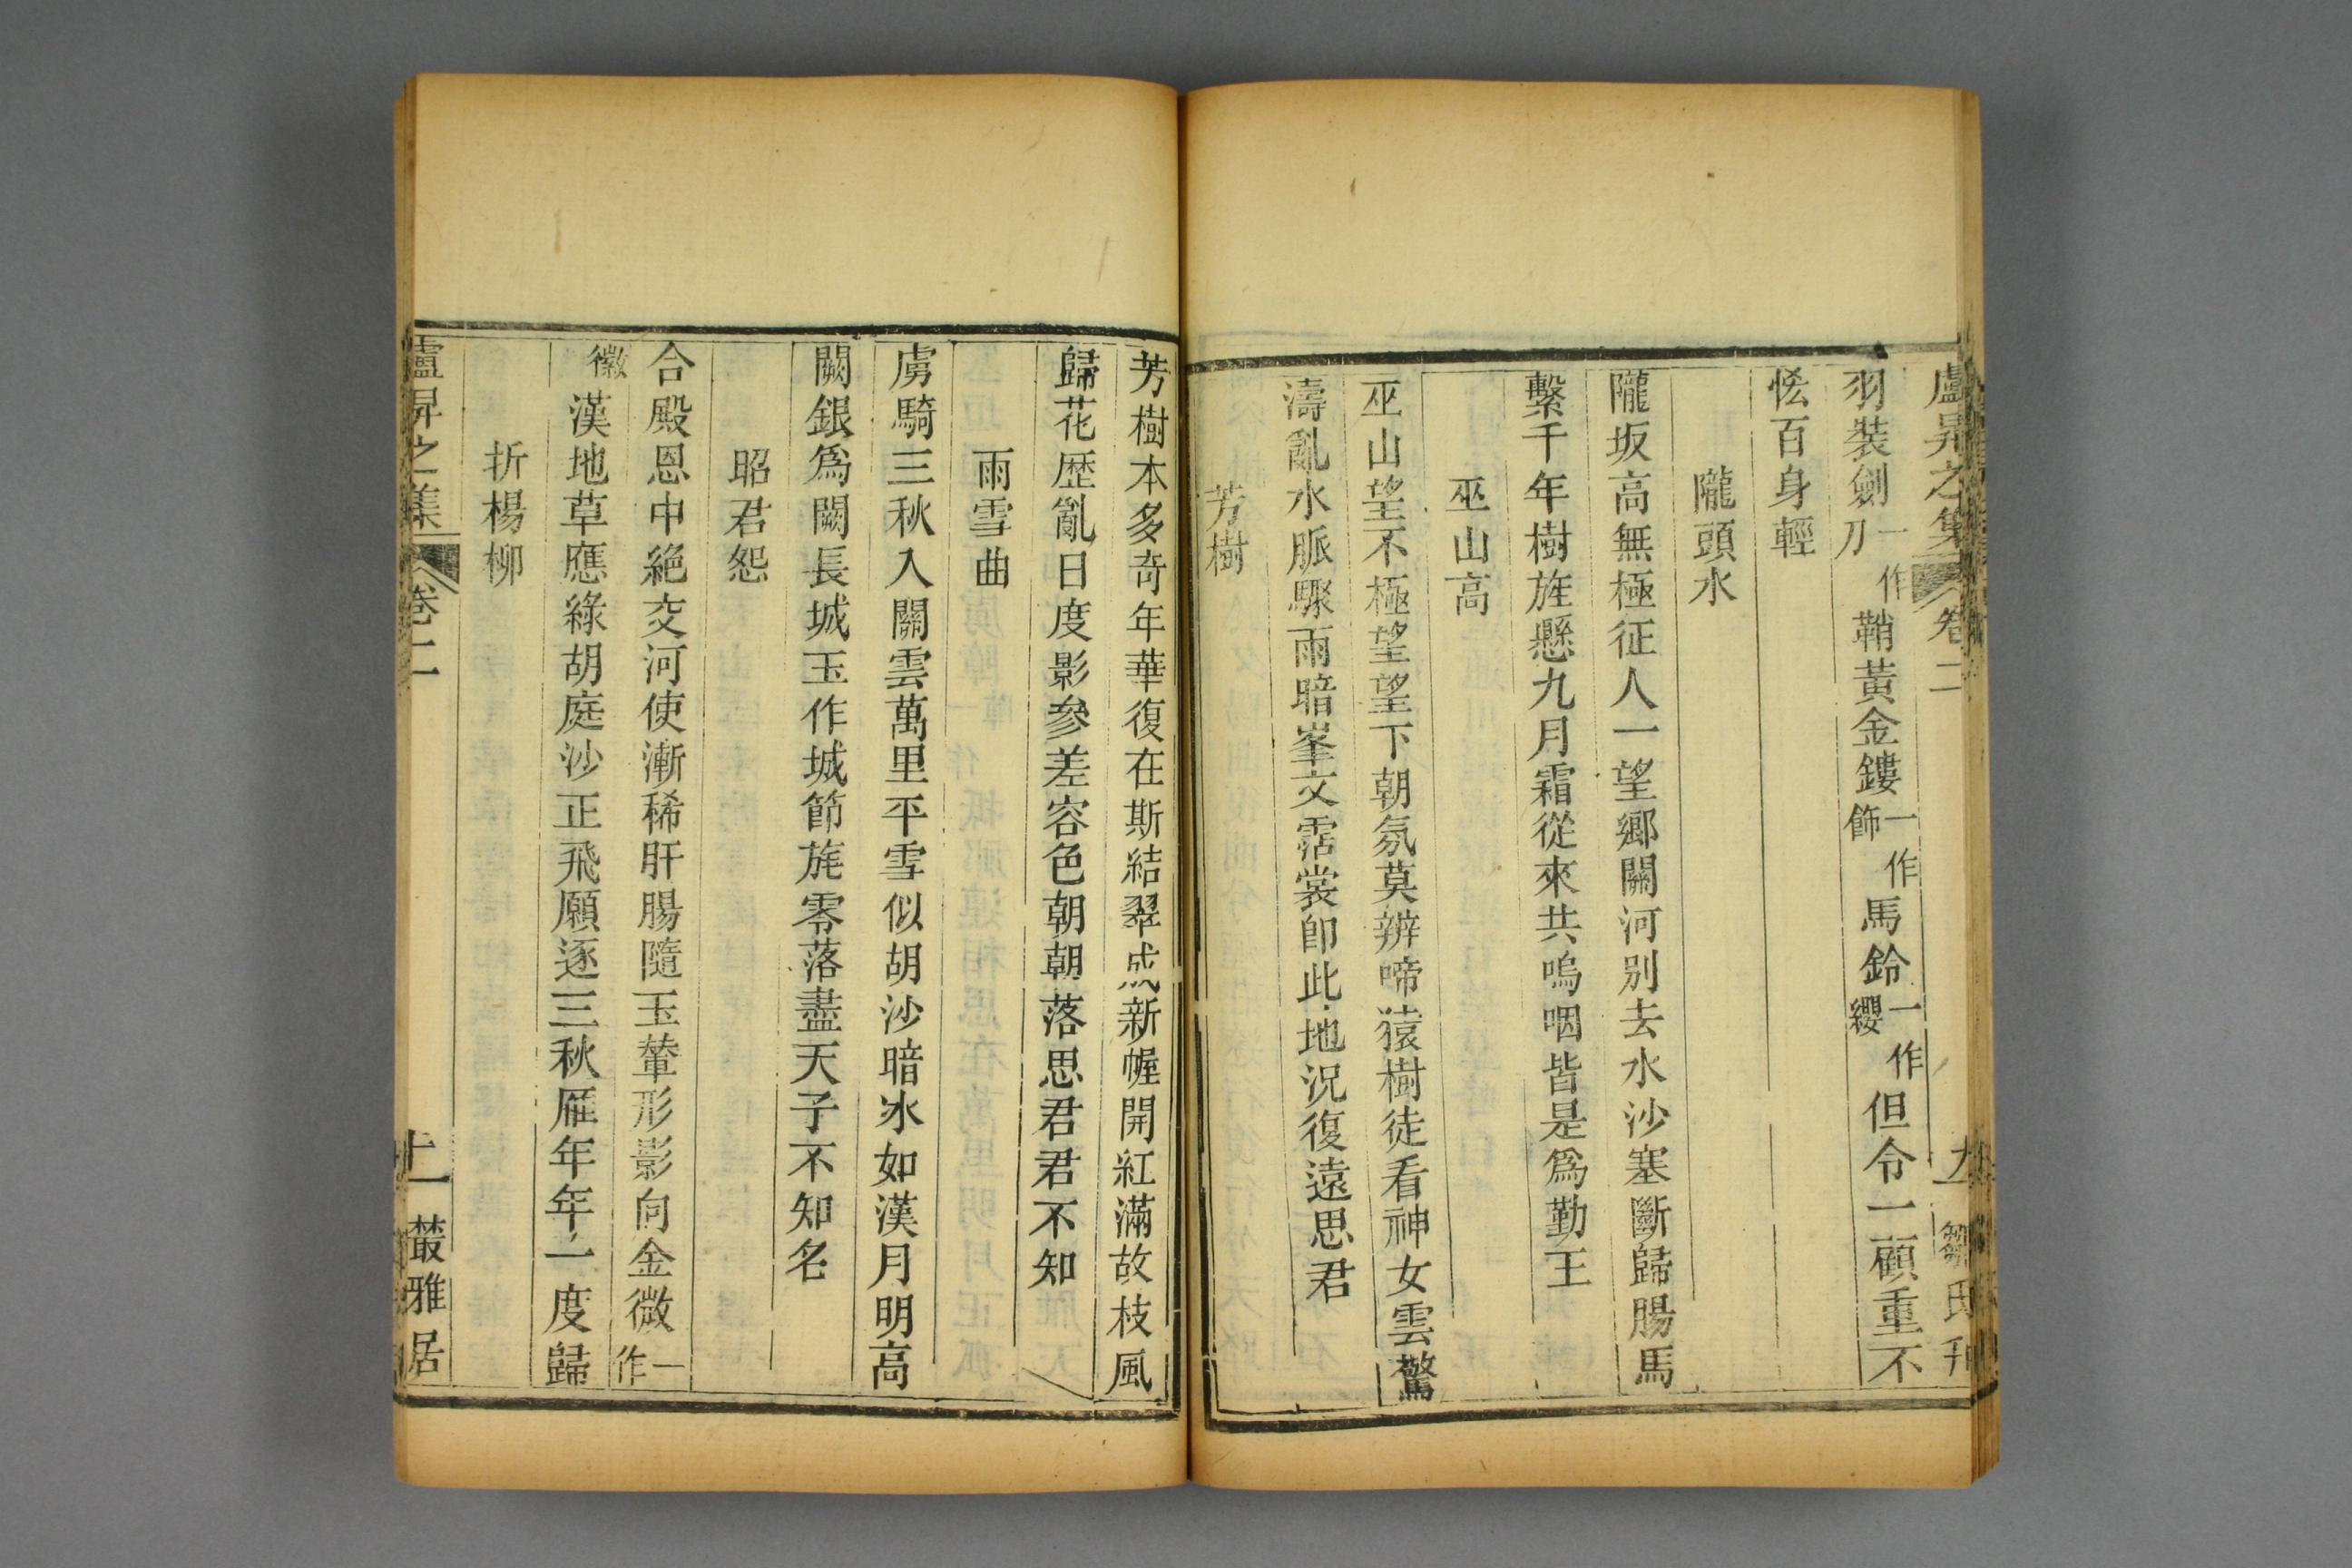 盧昇之集 卷二 九 鄒氏刊
羽裝劍一作刀鞘黃金鏤一作飾馬鈴一作纓但令一顧重不
恡百身輕
隴頭水
隴坂高無極征人一望鄉關河別去水沙塞斷歸腸馬
繫千年樹旌懸九月霜從來共嗚咽皆是爲勤王
巫山高
巫山望不極望望下朝氛莫辨啼猿樹徒看神女雲驚
濤亂水脈驟雨暗峯文霑裳即此地況復遠思君
芳樹
芳樹本多奇年華復在斯結翠成新幄開紅滿故枝風
歸花歷亂日度影參差容色朝朝落思君君不知
雨雪曲
虜騎三秋入關雲萬里平雪似胡沙暗冰如漢月明高
闕銀爲闕長城玉作城節旄零落盡天子不知名
昭君怨
合殿恩中絕交河使漸稀肝腸隨玉輦形影向金微一作
徽漢地草應綠胡庭沙正飛願逐三秋雁年年一度歸
折楊柳
盧昇之集 卷二 叢雅居